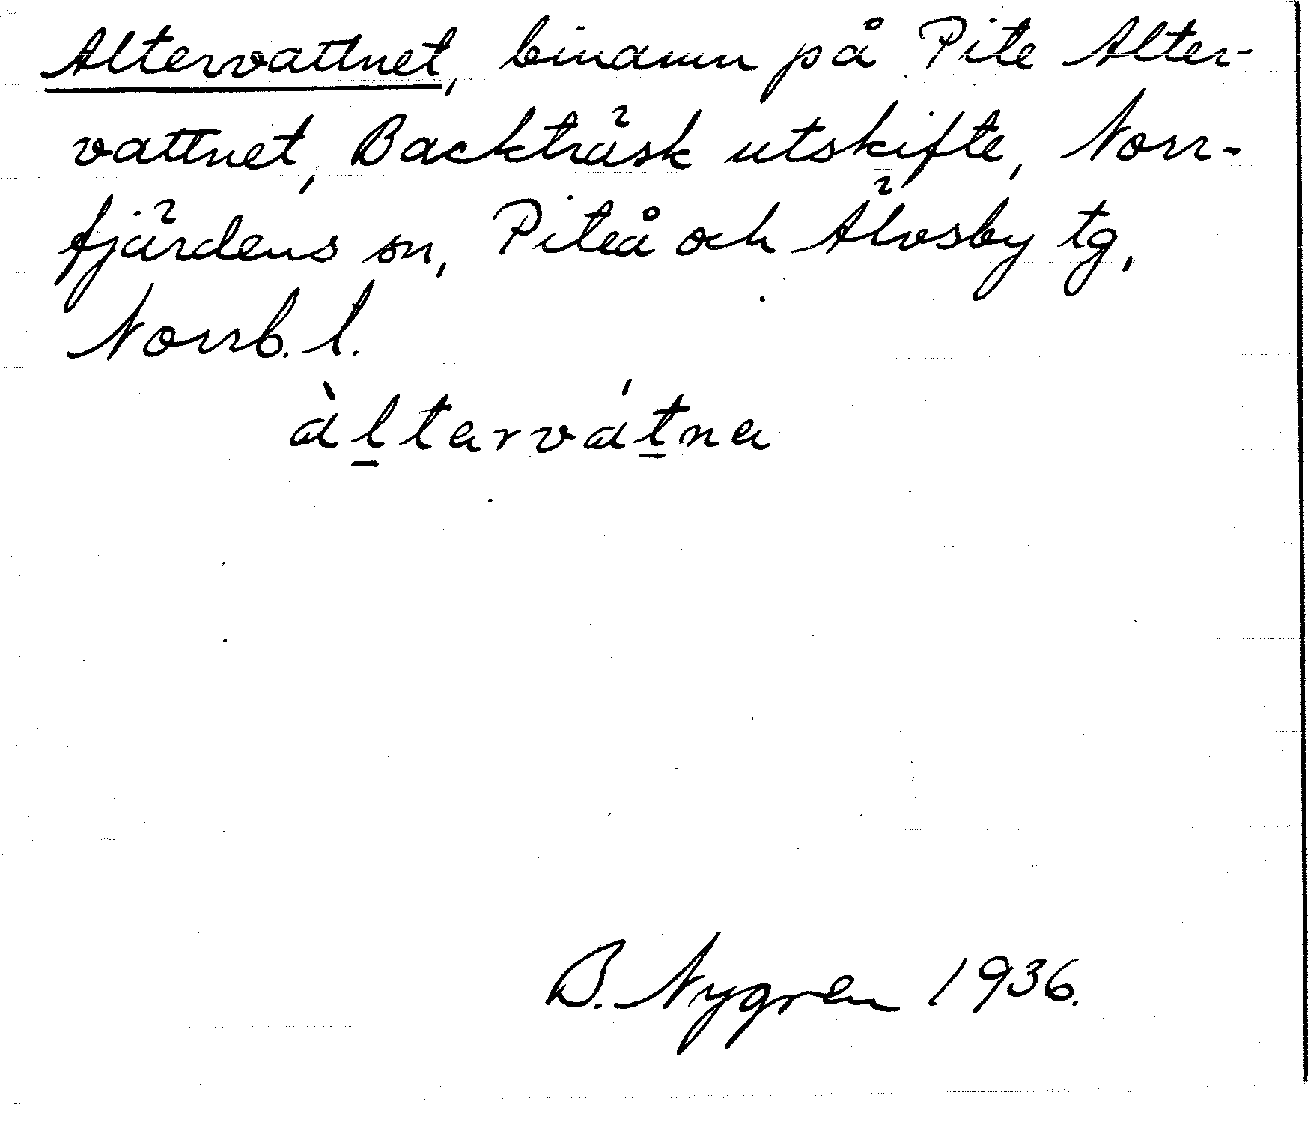 Altervattnet, binamn på Pite Alter-
vattnet, Backträsk utskifte, Norr-
fjärdens sn, Piteå och Älvsby tg,
Norrb. l.
àl̲tarvát̲na
B. Nygren 1936.